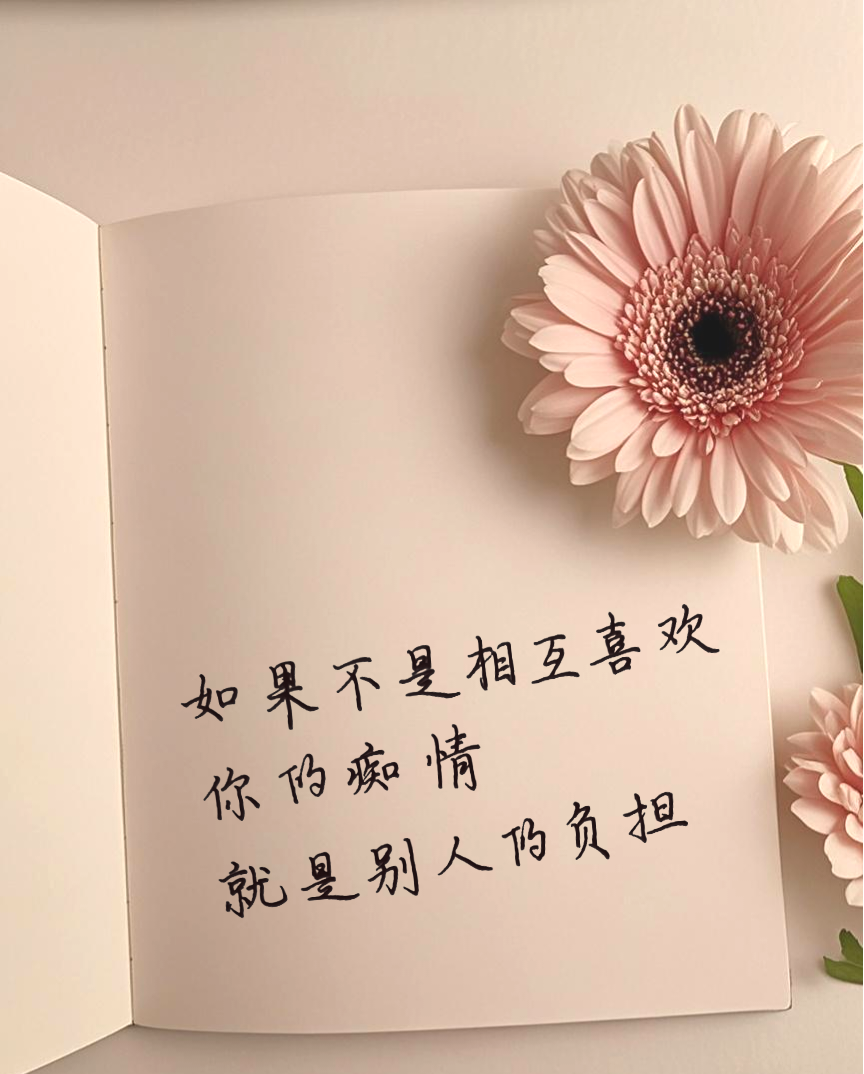 如果不是相互喜欢
你的痴情
就是别人的负担